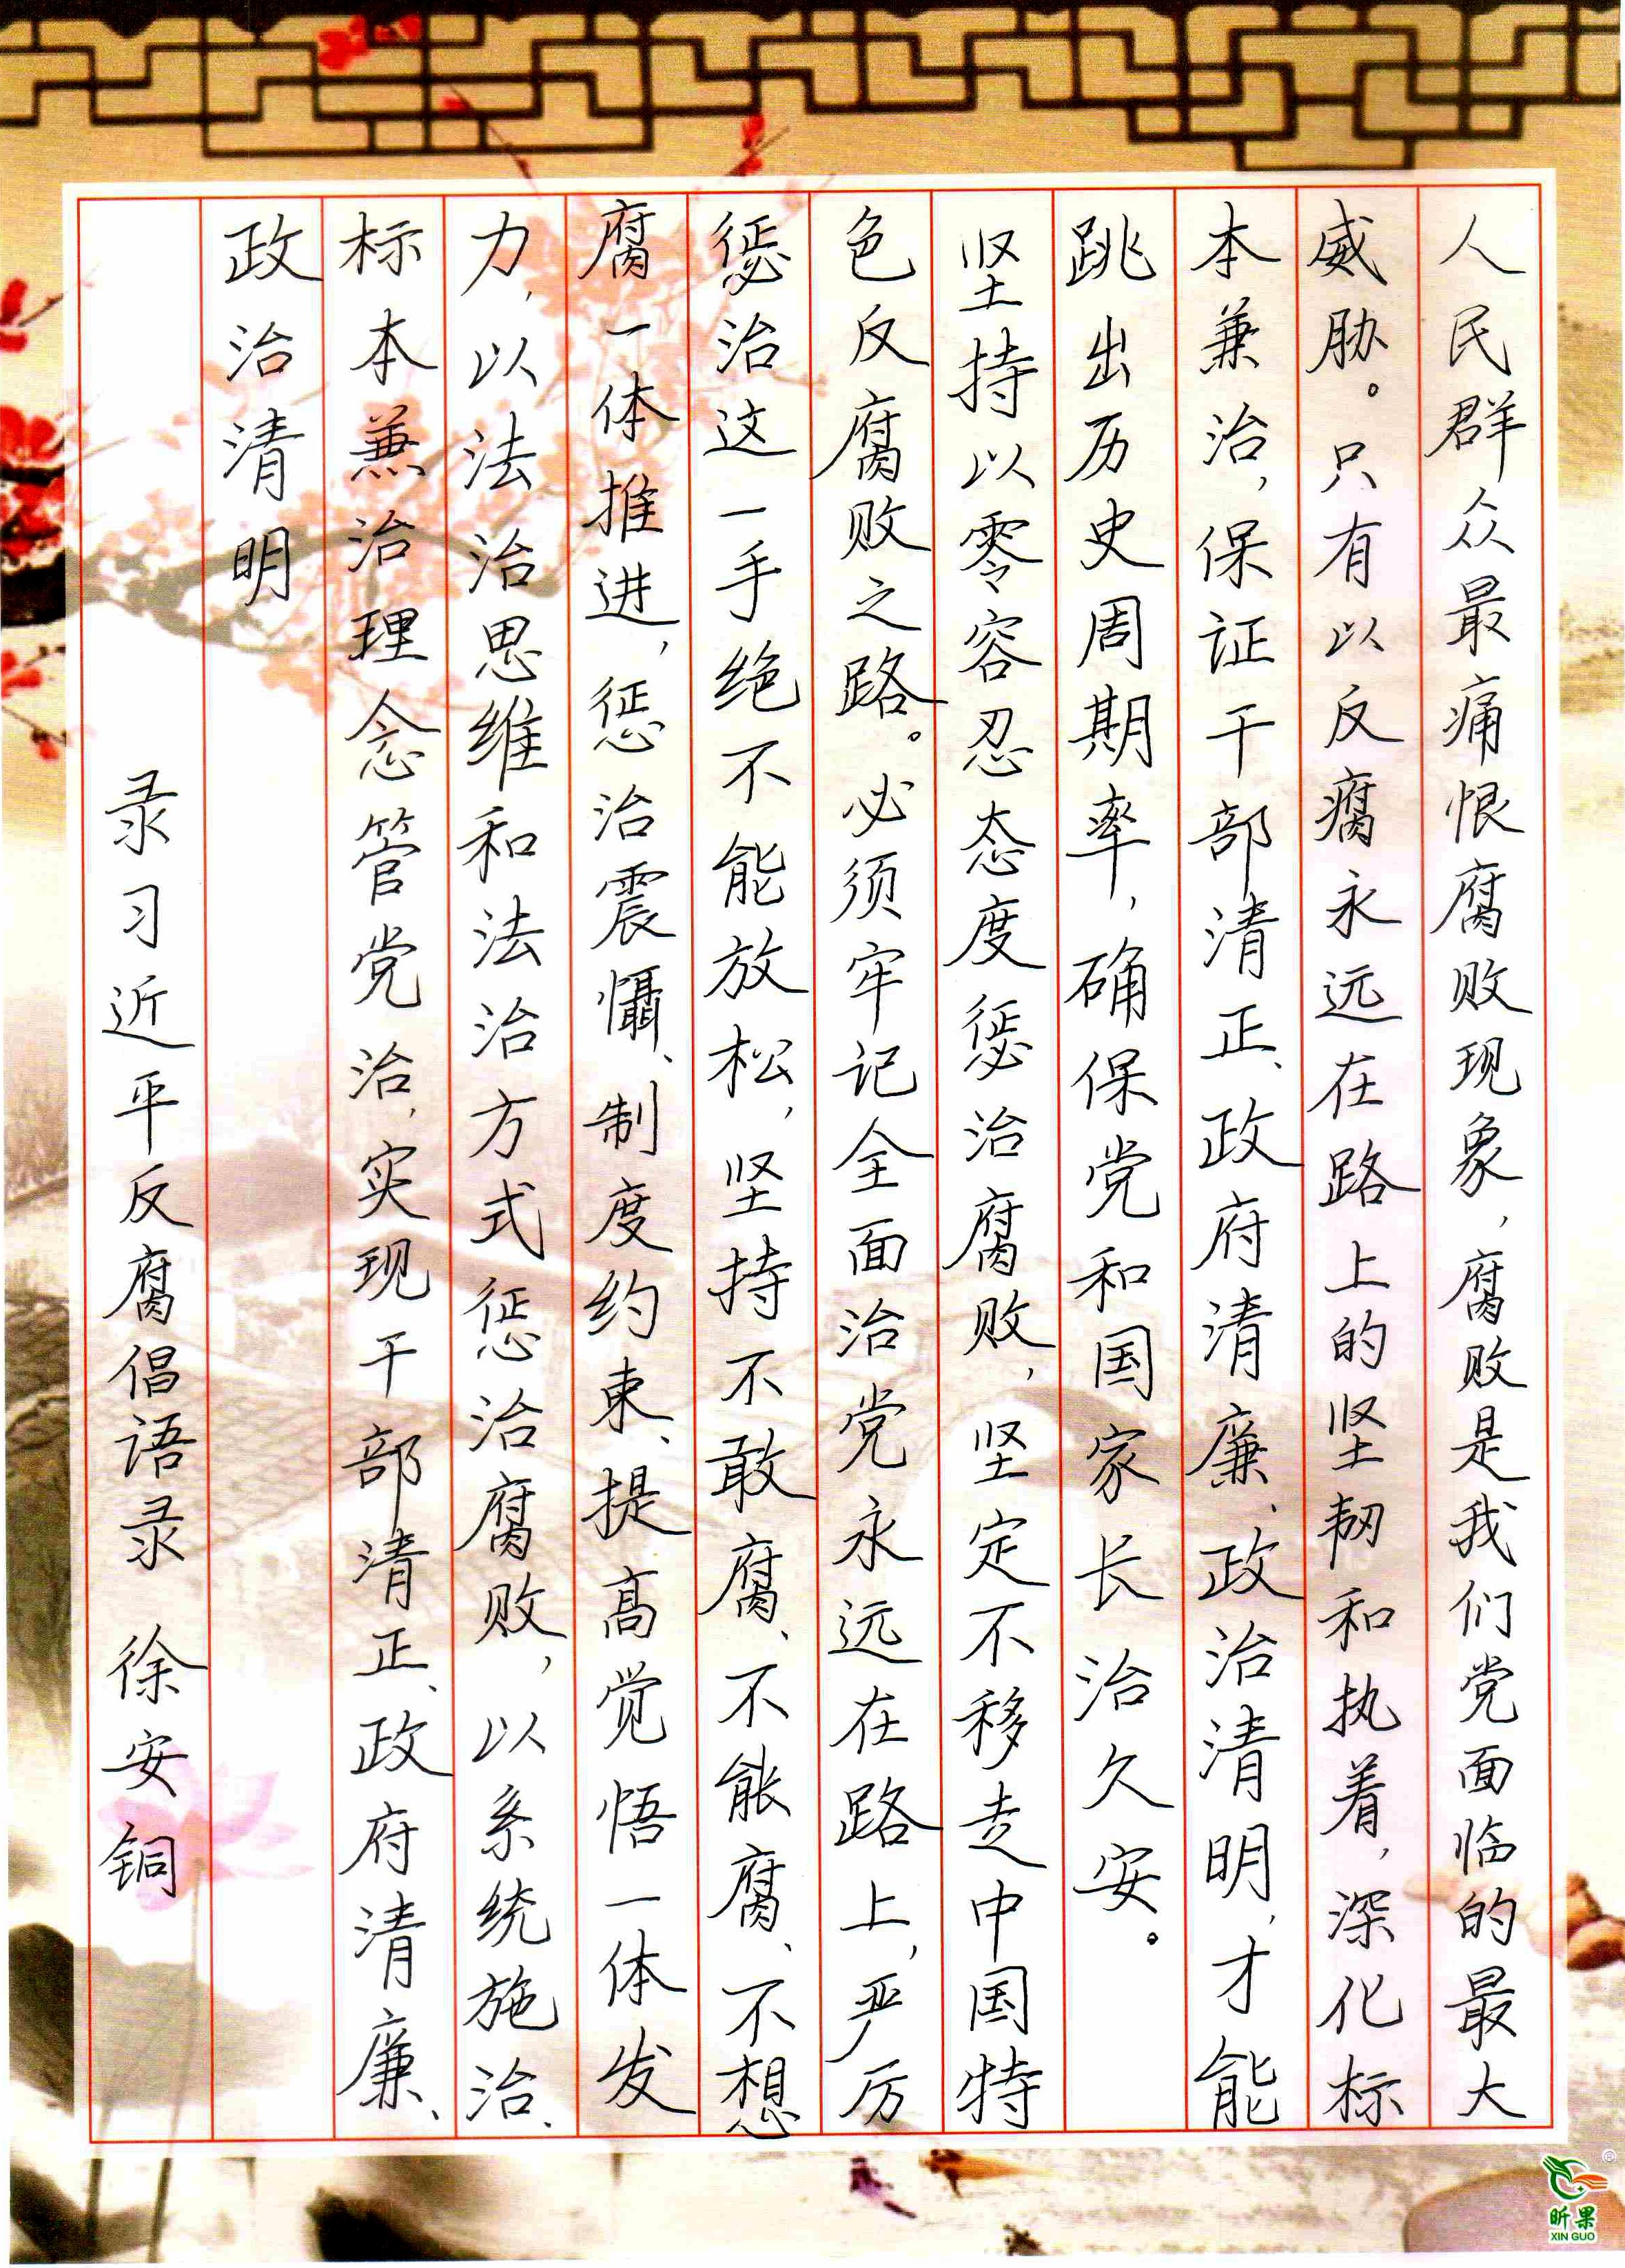 人民群众最痛恨腐败现象，腐败是我们党面临的最大
威胁。只有以反腐永远在路上的坚韧和执着，深化标
本兼治，保证干部清正、政府清廉、政治清明，才能
跳出历史周期率，确保党和国家长治久安。
坚持以零容忍态度惩治腐败，坚定不移走中国特
色反腐败之路。必须牢记全面治党永远在路上，严厉
惩治这一手绝不能放松，坚持不敢腐、不能腐、不想
腐一体推进，惩治震慑、制度约束、提高觉悟一体发
力，以法治思维和法治方式惩治腐败，以系统施治、
标本兼治理念管党治，实现干部清正、政府清廉、
政治清明
录习近平反腐倡语录 徐安铜
昕果
XIN GUO
®